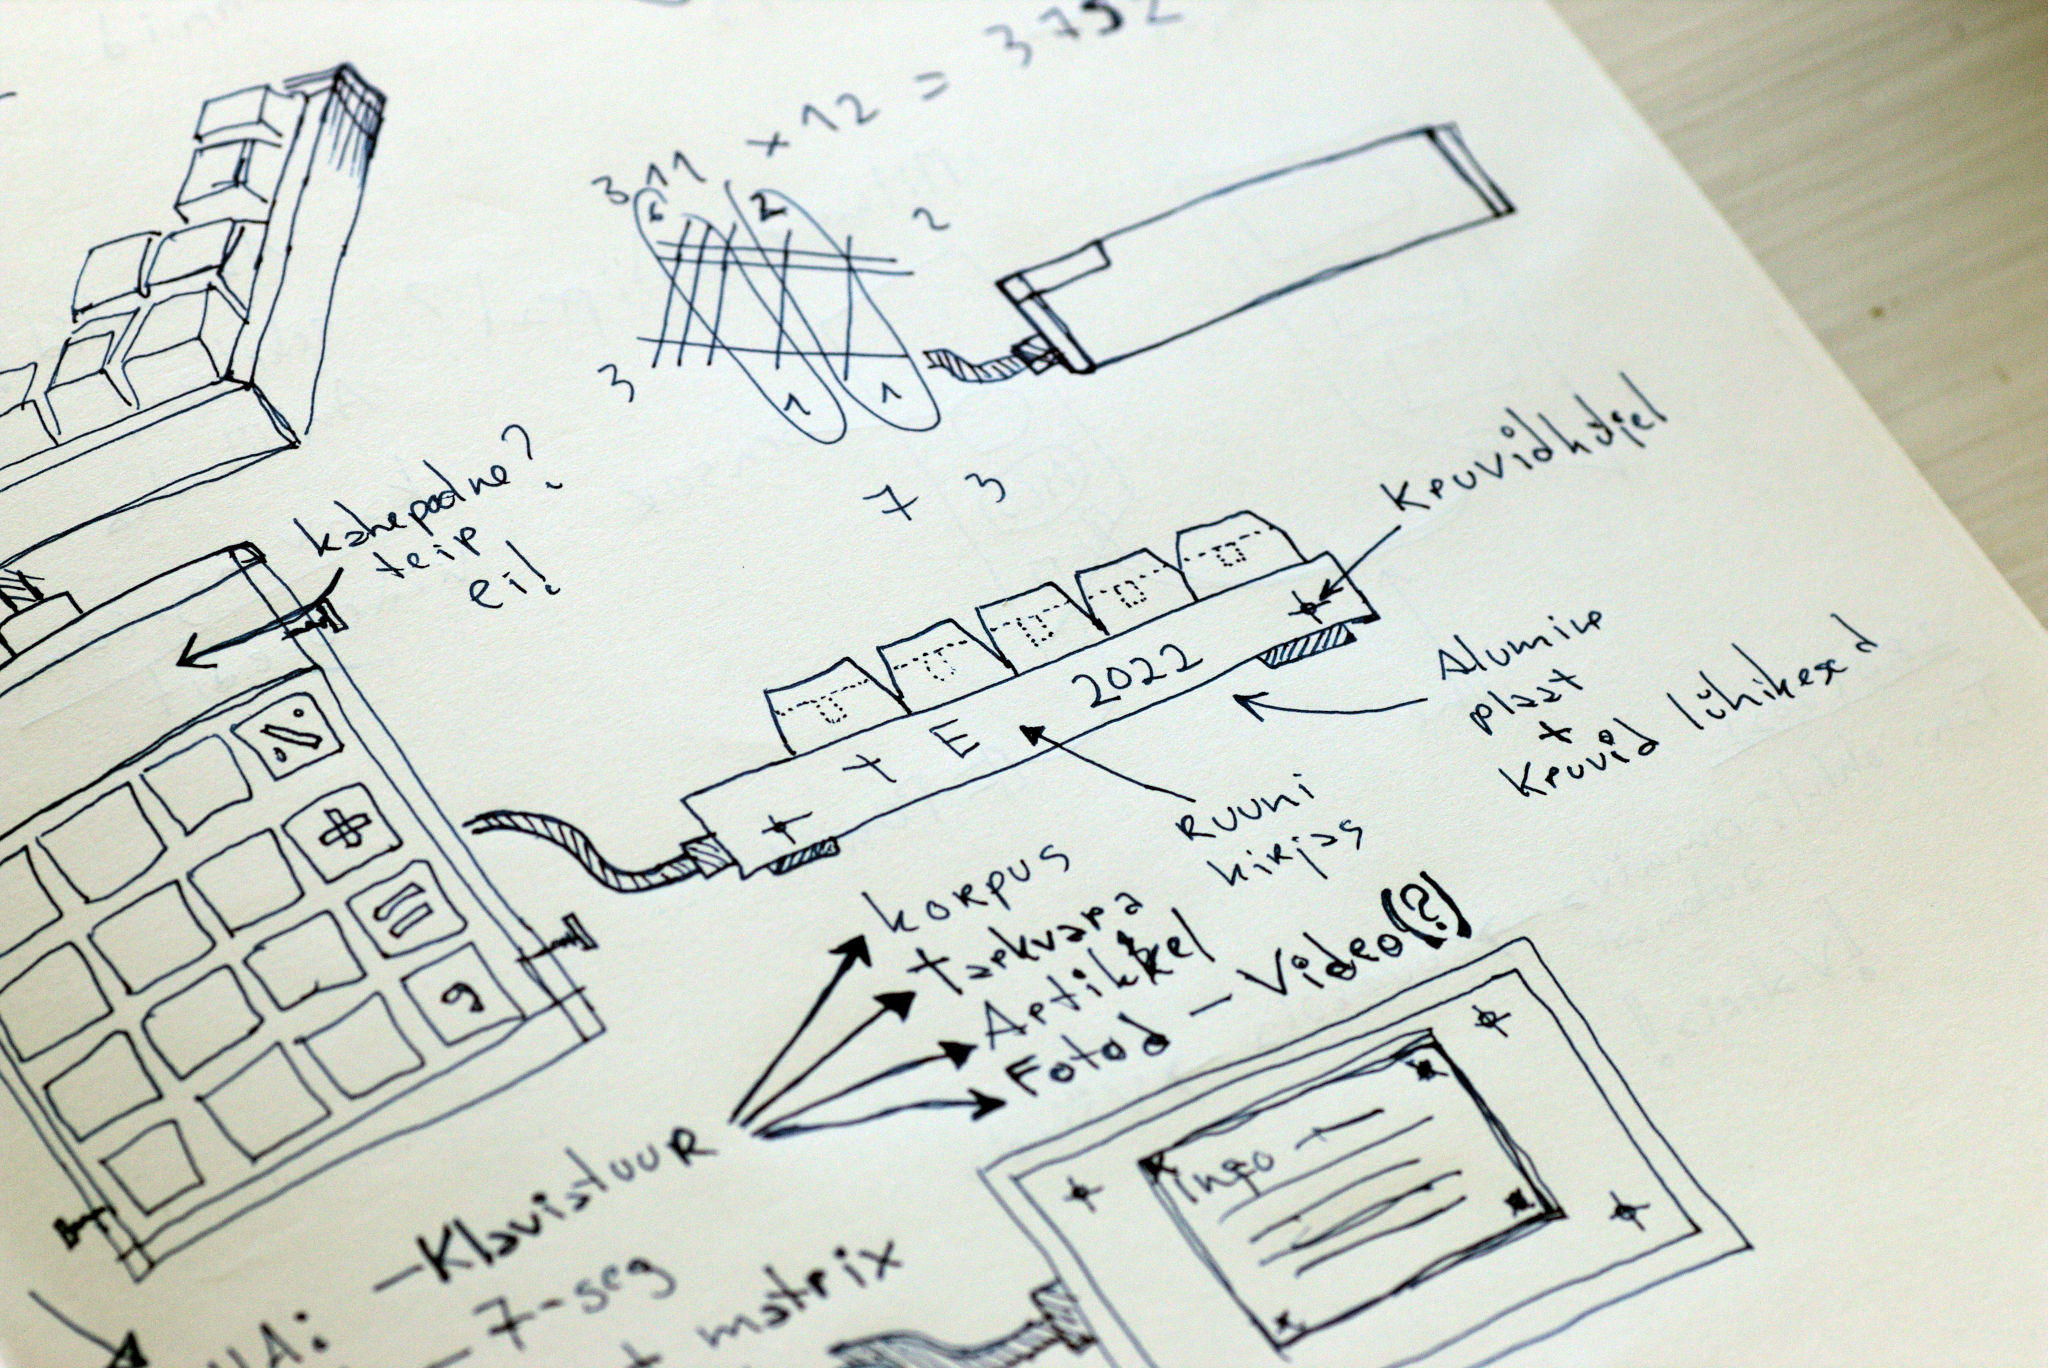 311 × 12 = 3732
6 2
2
3
1 1
7 3
kahepoolne?
teip
ei!
Kruvidküljel
Alumine
plaat
+
Kruvid lühikesed
2022
Ruuni
kirjas
korpus
tarkvara
Artikkel
Fotod - Video(?)
info -
- Klaviatuur
- 7-seg
matrix